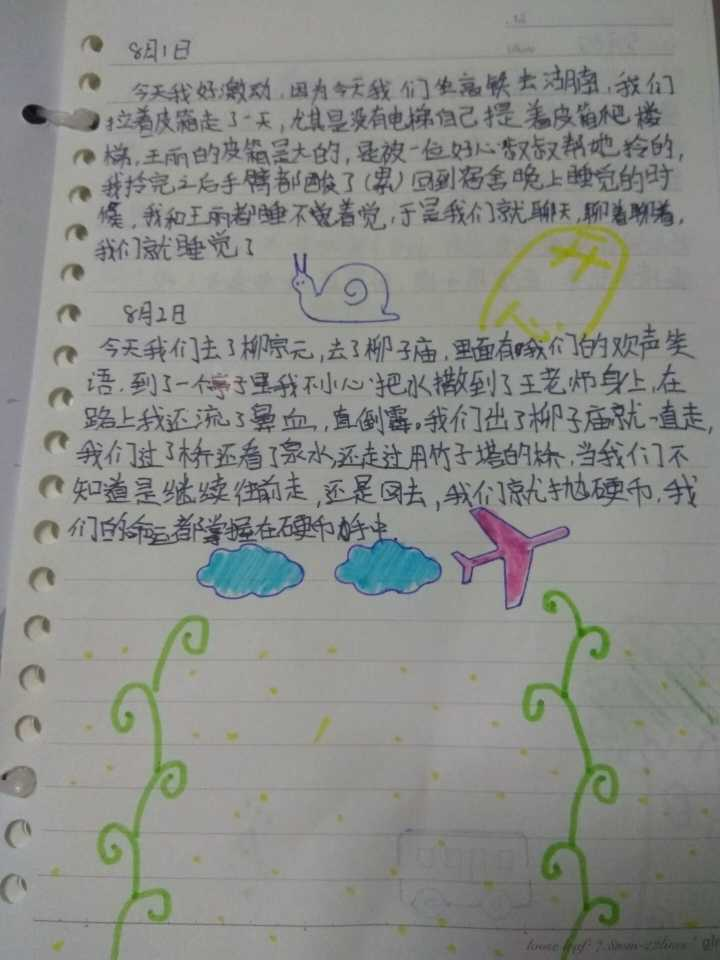 8月1日
今天我好激动，因为今天我们坐高铁去湖南，我们
拉着皮箱走了一天，尤其是没有电梯自己提着皮箱爬楼
梯，王丽的皮箱是大的，是被一位好心叔叔帮她拎的，
我拎完之后手臂都酸了(累)回到宿舍晚上睡觉的时
候，我和王丽都睡不觉着觉，于是我们就聊天，聊着聊着，
我们就睡觉了
8月2日
今天我们去了柳宗元，去了柳子庙，里面有我们的欢声笑
语，到了一个亭子里我不小心把水撒到了王老师身上，在
路上我还流了鼻血，真倒霉。我们出了柳子庙就一直走，
我们过了桥还看了泉水，还走过用竹子塔的桥，当我们不
知道是继续往前走，还是回去，我们就抛硬币，我
们的命运都掌握在硬币手中.
loose leaf·7.8mm·22lines